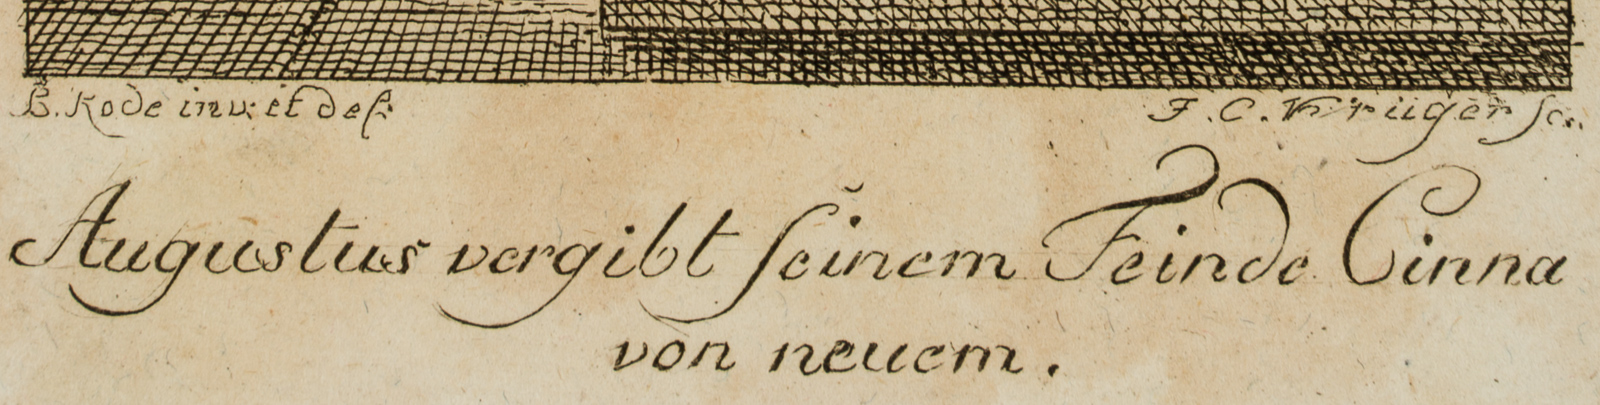 B. Rode inv: et del:
F. C. Krüger sc:
Augustus vergibt seinem Feinde Cinna
von neuem.